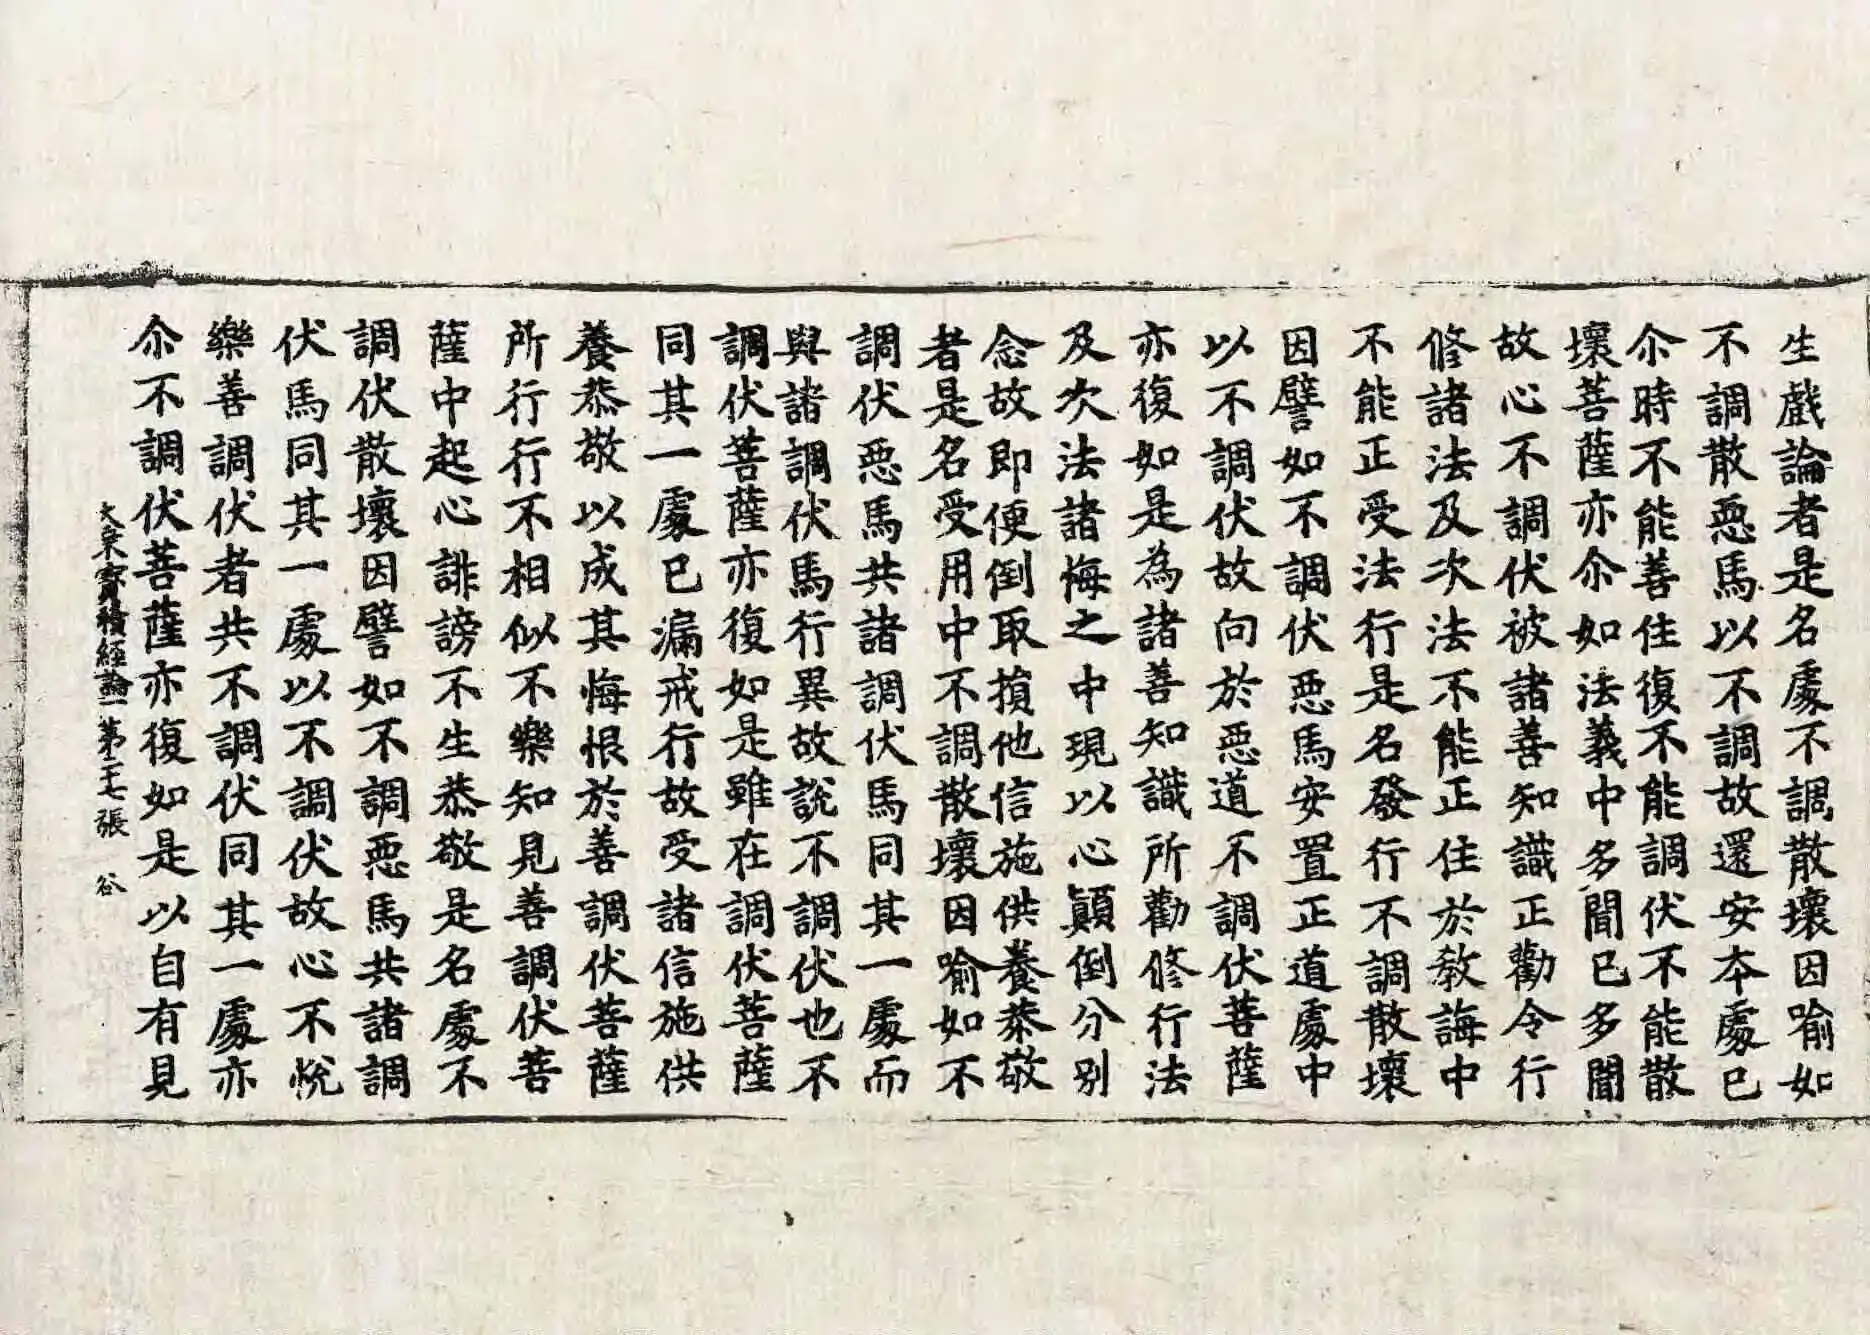 生戲論者是名處不調散壞因喻如
不調散惡馬以不調故還安本處已
尒時不能善住復不能調伏不能散
壞菩薩亦尒如法義中多聞已多聞
故心不調伏被諸善知識正勸令行
修諸法及次法不能正住於教誨中
不能正受法行是名發行不調散壞
因譬如不調伏惡馬安置正道處中
以不調伏故向於惡道不調伏菩薩
亦復如是為諸善知識所勸修行法
及次法諸悔之中現以心顛倒分別
念故即便倒取損他信施供養恭敬
者是名受用中不調散壞因喻如不
調伏惡馬共諸調伏馬同其一處而
與諸調伏馬行異故說不調伏也不
調伏菩薩亦復如是雖在調伏菩薩
同其一處已漏戒行故受諸信施供
養恭敬以成其悔恨於善調伏菩薩
所行行不相似不樂知見善調伏菩
薩中起心誹謗不生恭敬是名處不
調伏散壞因譬如不調惡馬共諸調
伏馬同其一處以不調伏故心不悅
樂善調伏者共不調伏同其一處亦
尒不調伏菩薩亦復如是以自有見
大乘寶積經論一 第二十七張 谷